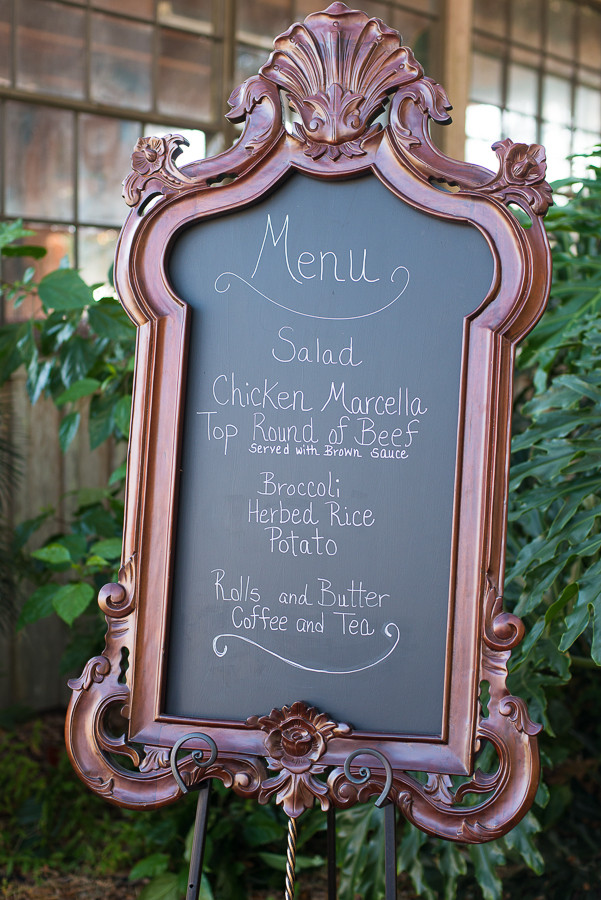 Menu
Salad
Chicken Marcella
Top Round of Beef
Served with Brown sauce
Broccoli
Herbed Rice
Potato
Rolls and Butter
Coffee and Tea